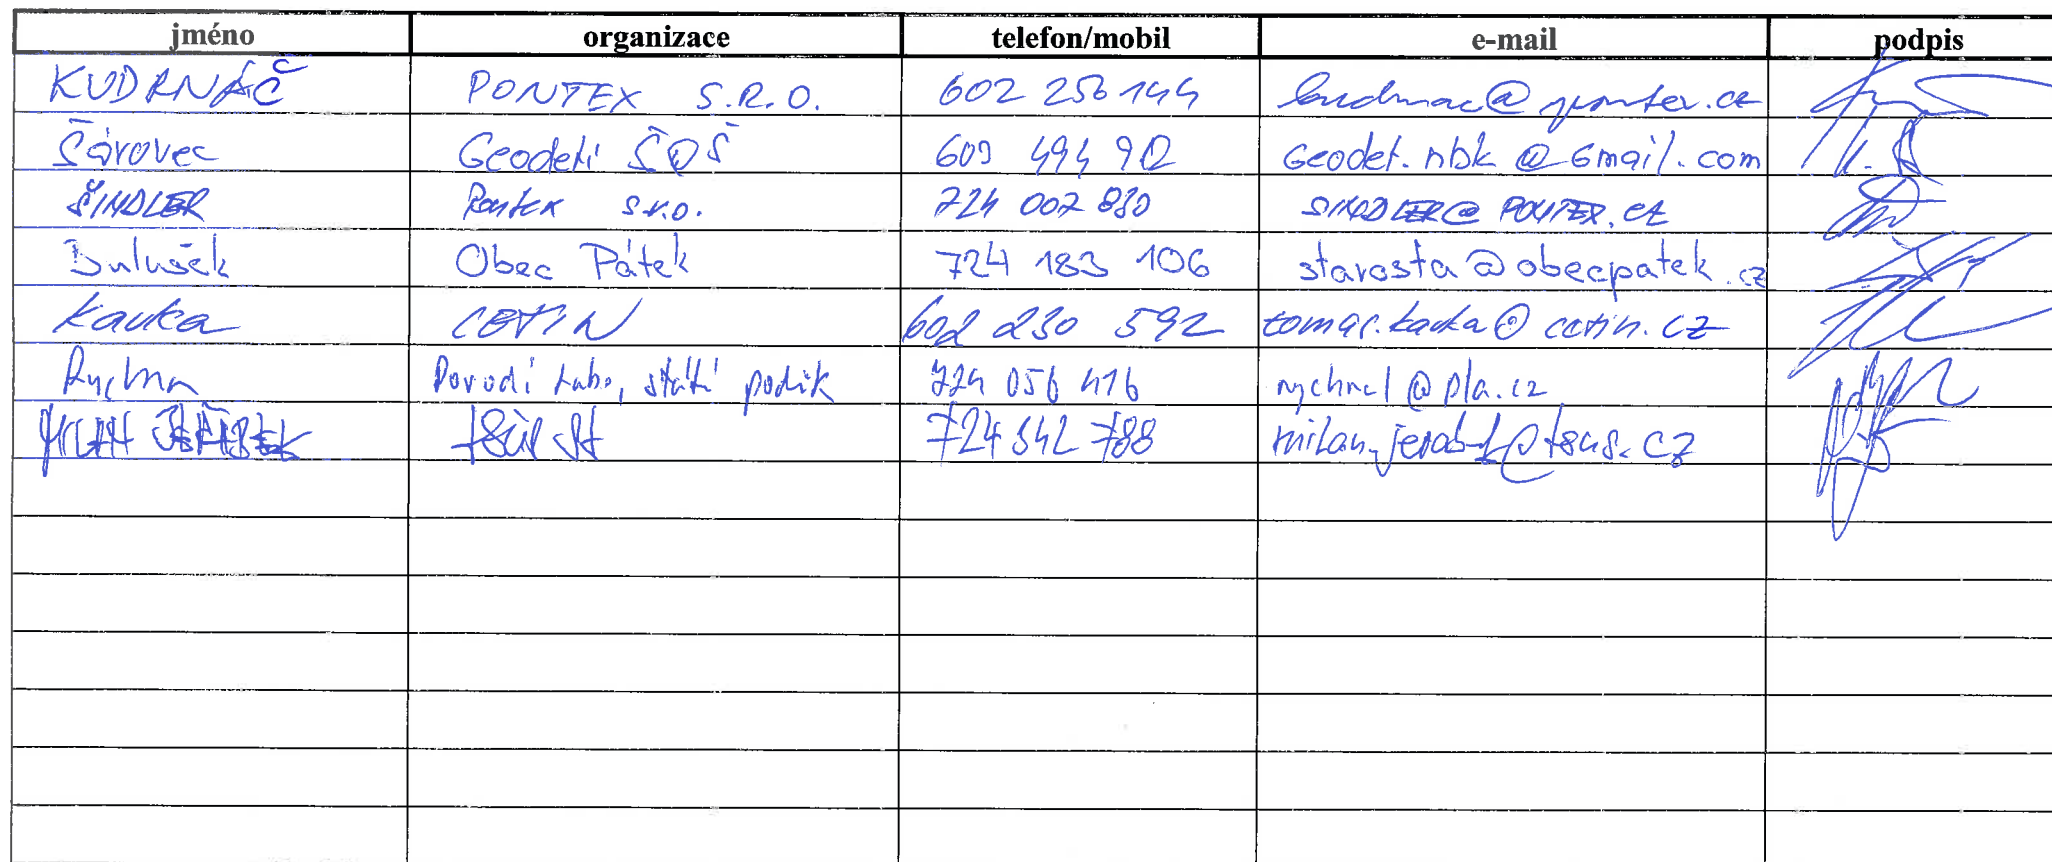 jméno organizace telefon/mobil e-mail podpis
KUDRNÁČ PONTEX S.R.O. 602 256 144 kudrnac@pontex.cz
Šárovec Geodeti ŠOŠ 603 494 912 Geodet.nbk@Gmail.com
ŠINDLER Pontex s.r.o. 724 007 830 SINDLER@PONTEX.CZ
Obec Pátek 724 183 106 starosta@obecpatek.cz
Kavka CETIN 602 230 592 tomas.kavka@cetin.cz
Povodí Labe, státí podnik 724 056 416 rychnal@pla.cz
MILAN JEŘÁBEK 724 542 788